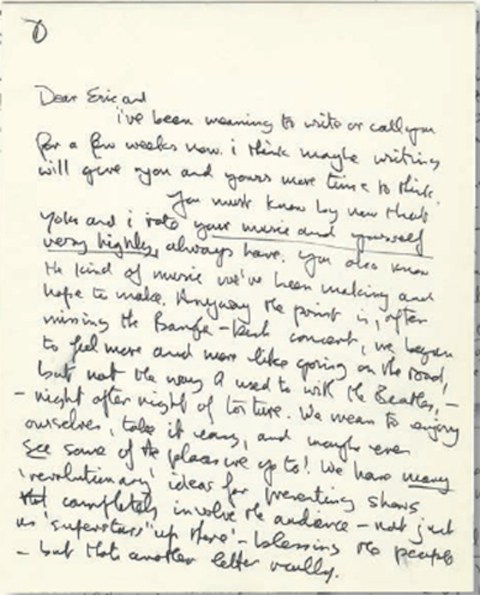 Dear Eric and
i've been meaning to write or call you
for a few weeks now. i think maybe writing
will give you and yours more time to think.
You must know by now that
Yoko and i rate your music and yourself
very highly, always have. You also know
the kind of music we've been making and
hope to make. Anyway the point is, after
missing the Bangla-Desh concert, we began
to feel more and more like going on the road,
but not the way I used to with the Beatles, –
– night after night of torture. We mean to enjoy
ourselves, take it easy, and maybe even
see some of the places we go to! We have many
'revolutionary' ideas for presenting shows
that completely involve the audience – not just
as 'superstars' 'up there' – blessing the people
– but thats another letter really.